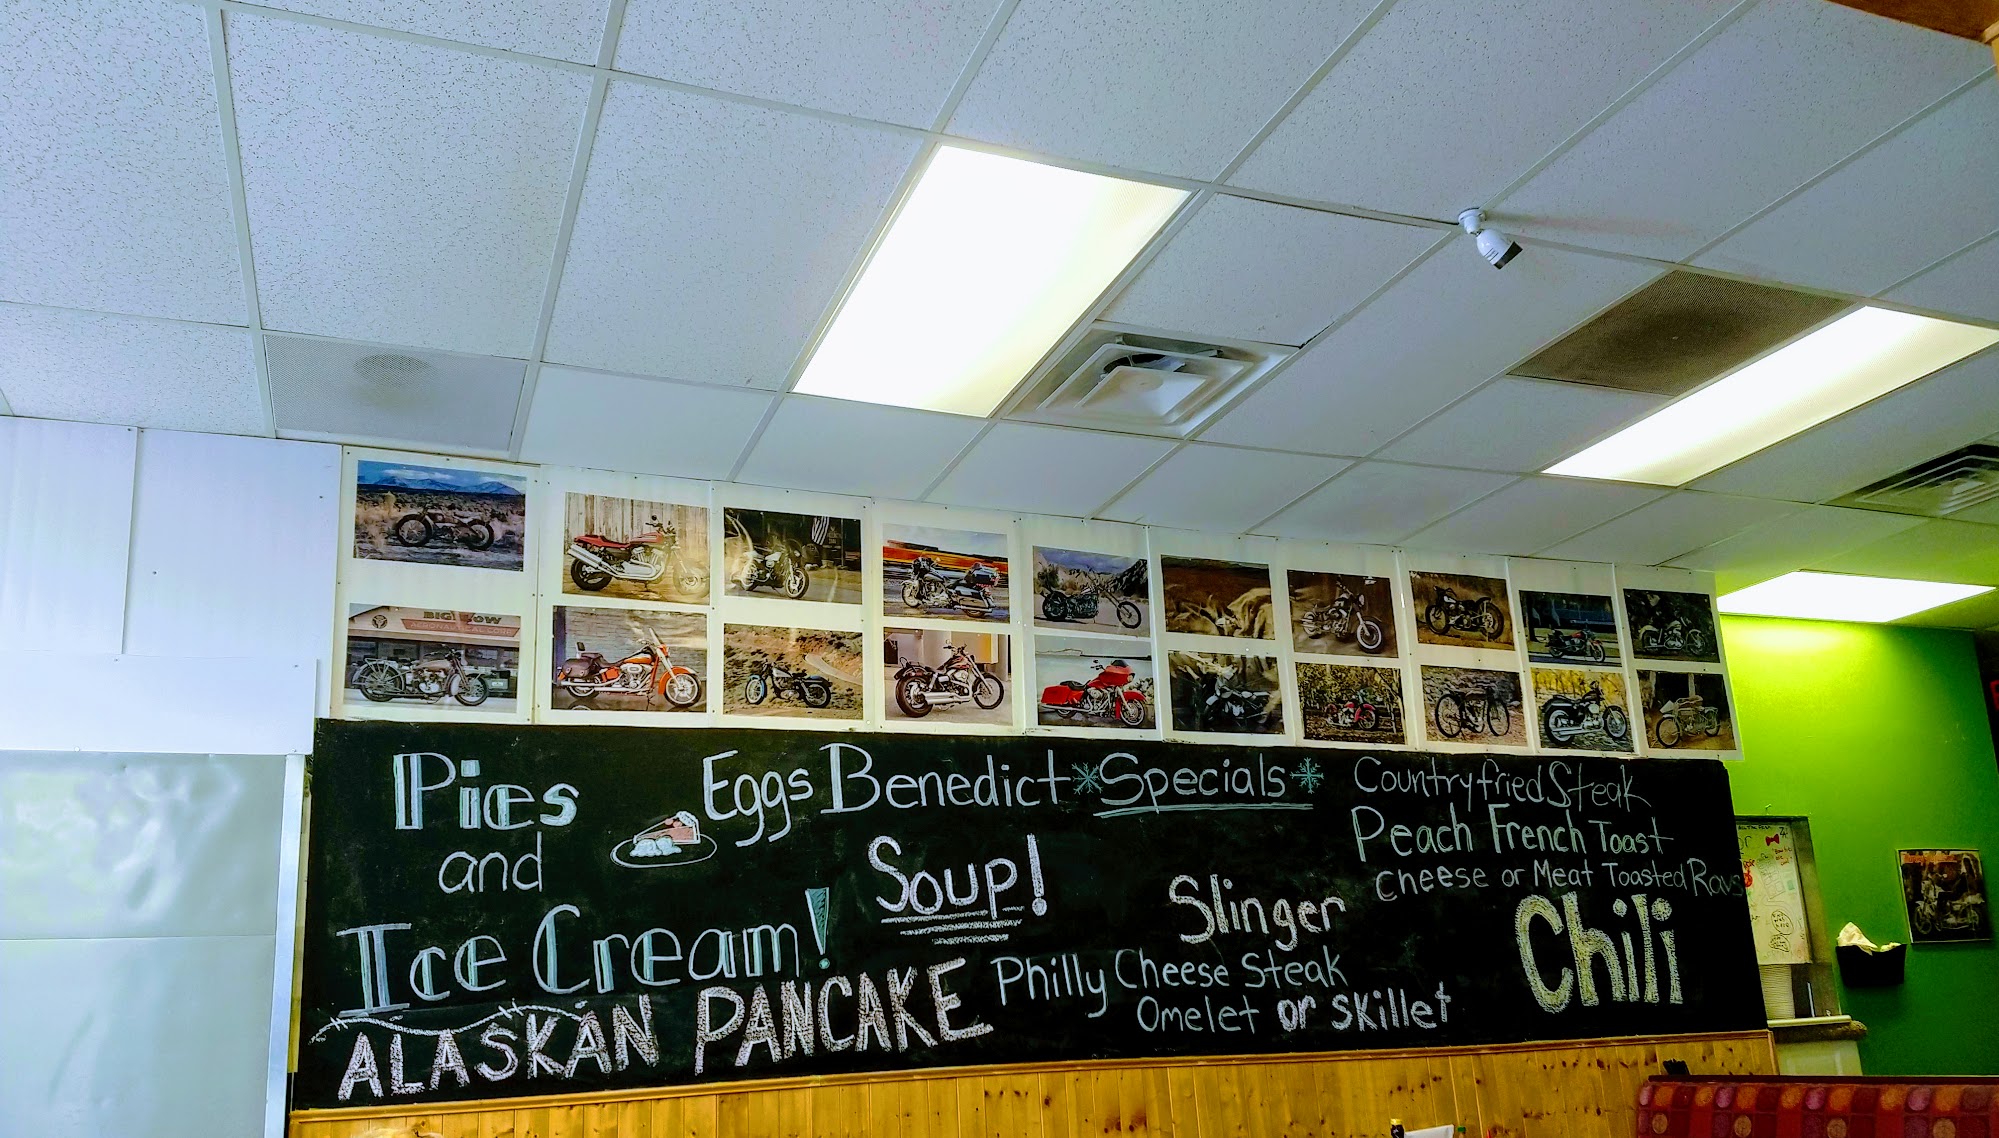 BIG BOW
AERONAUTICAL CORP.
Pies
and
Ice Cream!
ALASKAN PANCAKE
Eggs Benedict
Soup!
Specials
Slinger
Philly Cheese Steak
Omelet or Skillet
Countryfried Steak
Peach French Toast
Cheese or Meat Toasted Ravs
Chili